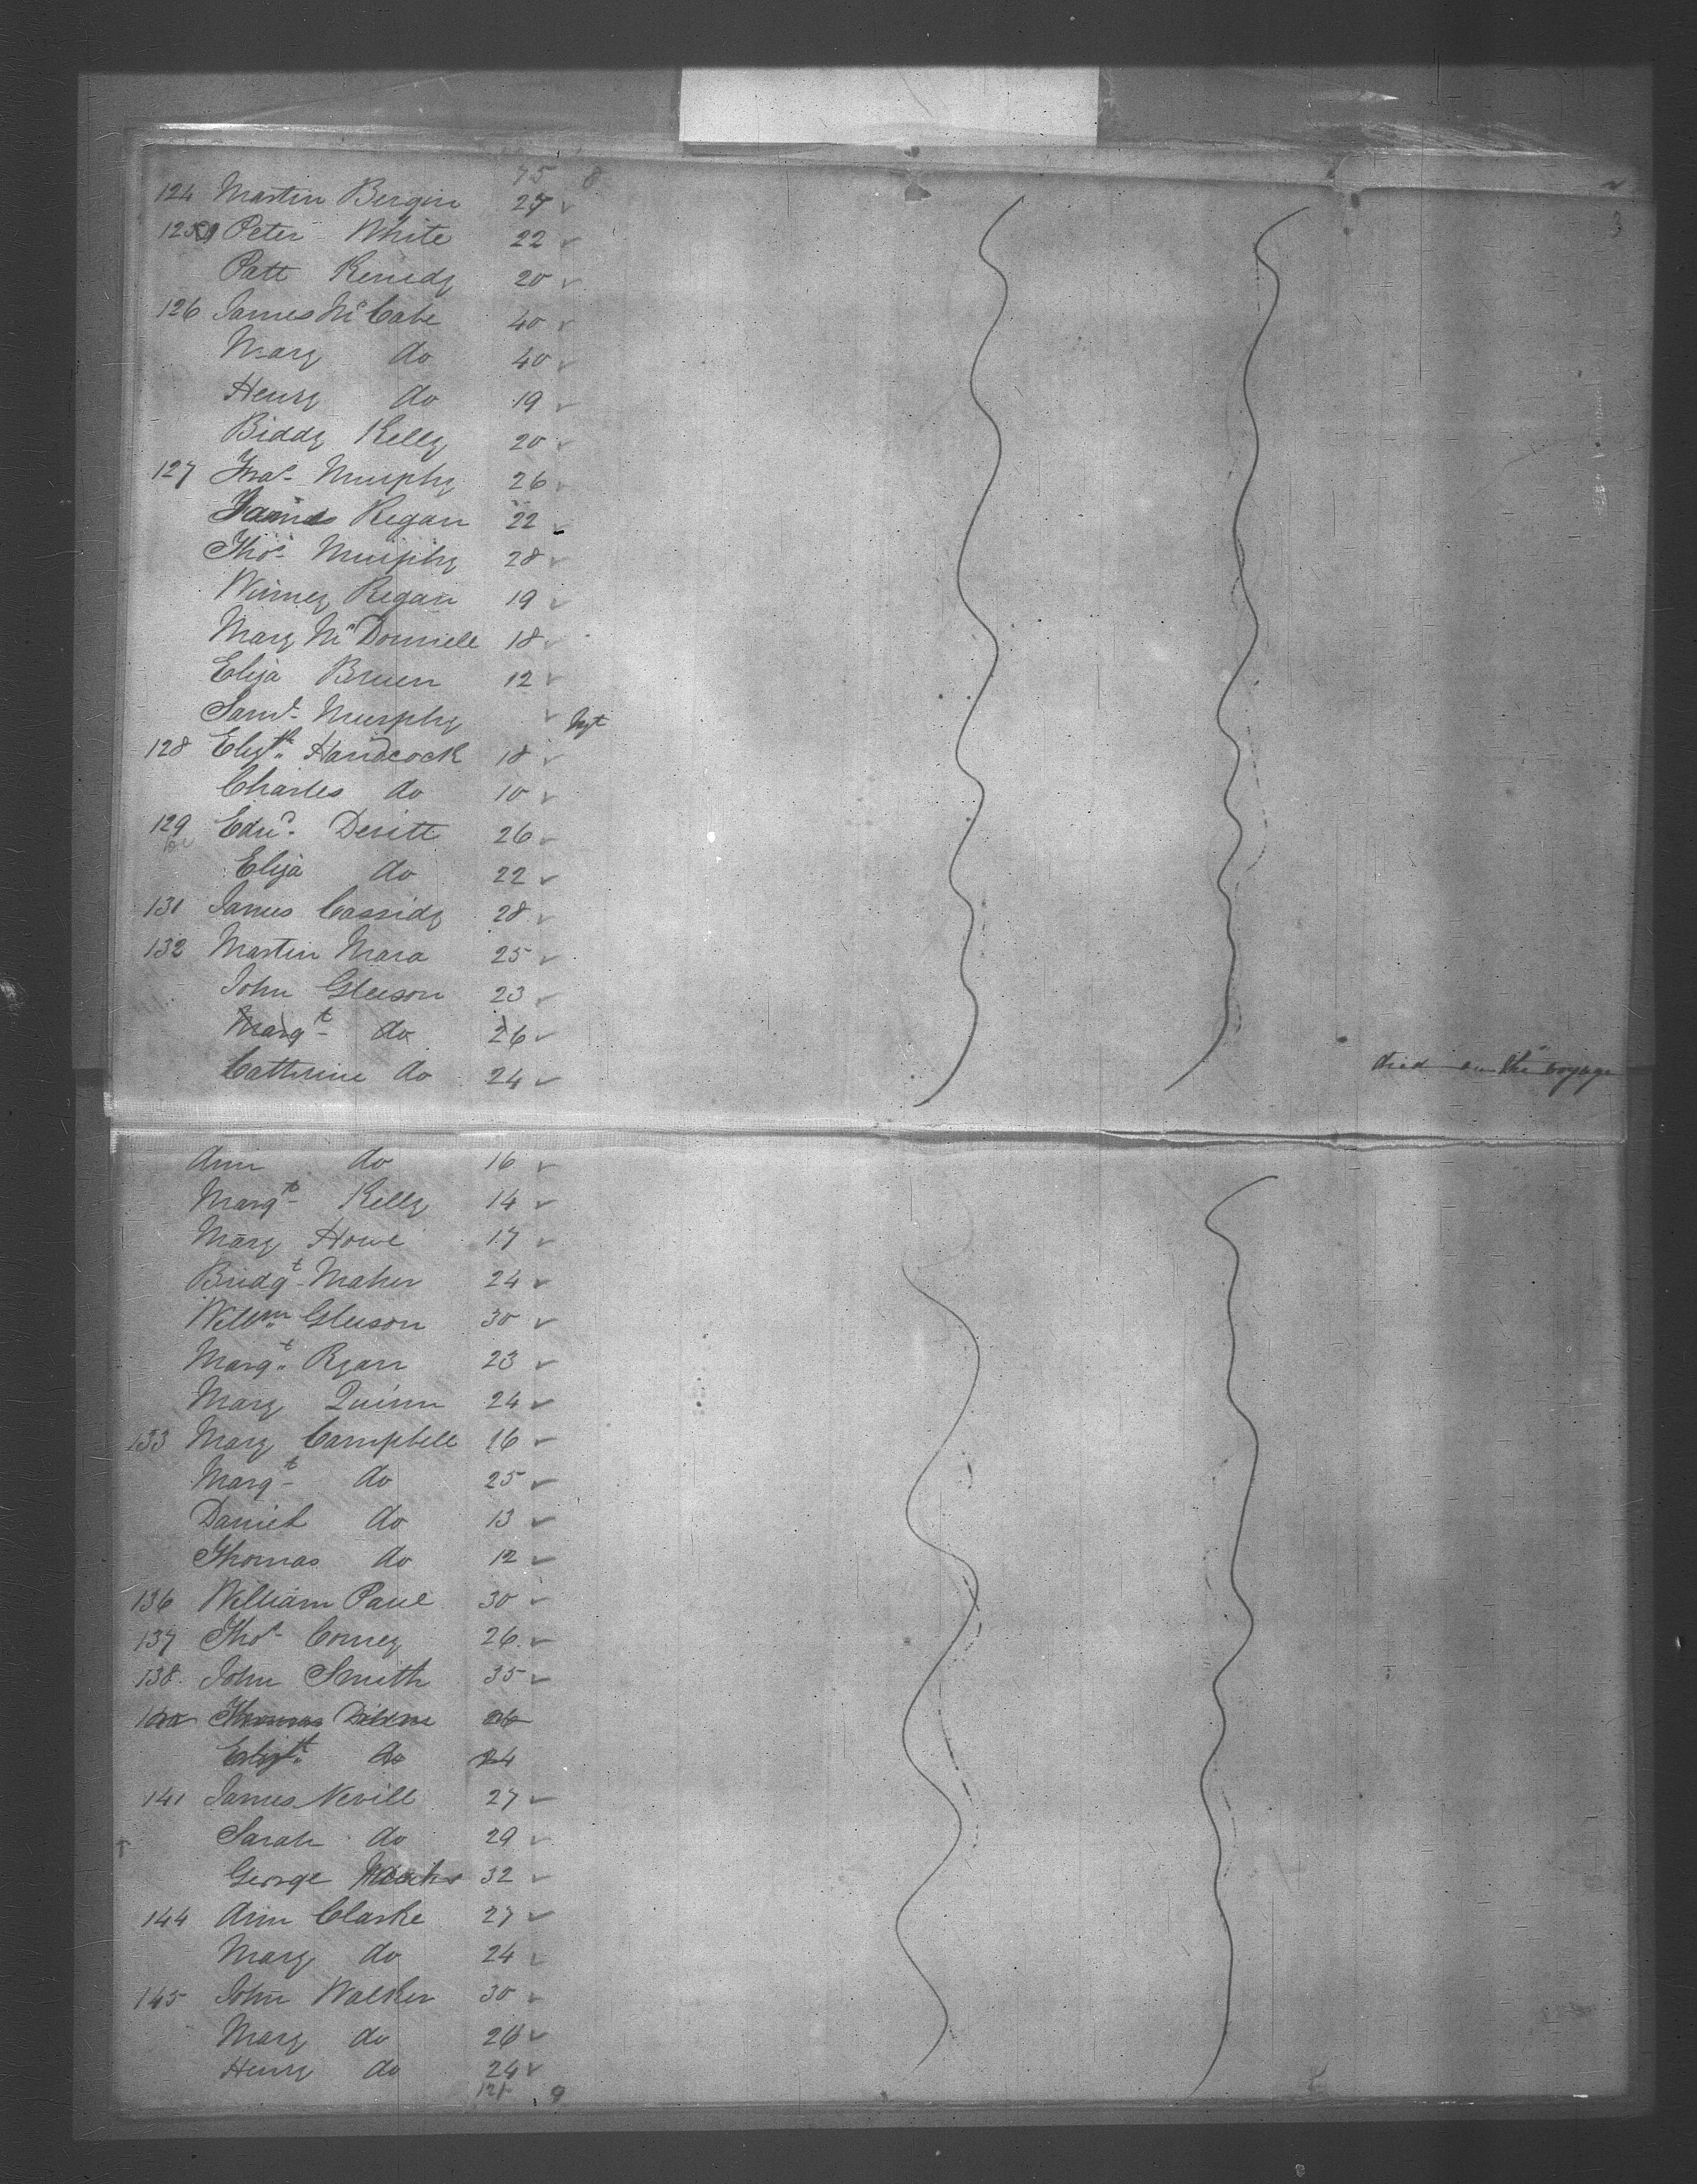 75 8
124 Martin Bergin 27 ✓
125 Peter White 22 ✓
Patt Kenedy 20 ✓
126 James McCabe 40 ✓
Mary do 40 ✓
Henry do 19 ✓
Biddy Kelly 20 ✓
127 Murphy 26 ✓
James Regan 22 ✓
Thos Murphy 28 ✓
Winney Regan 19 ✓
Mary McDonnell 18 ✓
Eliza Bruen 12 ✓
Saml Murphy ✓ Inft
128 Elizth Handcock 18 ✓
Charles do 10 ✓
129 Edwd Devitt 26 ✓
Eliza do 22 ✓
131 James Cassidy 28 ✓
132 Martin Mara 25 ✓
John Gleeson 23 ✓
Margt do 26 ✓
Catherine do 24 ✓ died on the voyage
Ann do 16 ✓
Margt Kelly 14 ✓
Mary Howe 17 ✓
Bridgt Maher 24 ✓
Willm Gleeson 30 ✓
Margt Ryan 23 ✓
Mary Quinn 24 ✓
133 Mary Campbell 16 ✓
Margt do 25 ✓
Daniel do 13 ✓
Thomas do 12 ✓
136 William Paul 30 ✓
137 Thos Comey 26 ✓
138 John Smith 35 ✓
Thomas Dillon 26
Elizth do 24
141 James Nevill 27 ✓
Sarah do 29 ✓
George 32 ✓
144 Ann Clarke 27 ✓
Mary do 24 ✓
145 John Walker 30 ✓
Mary do 26 ✓
Henry do 24 ✓
121 9